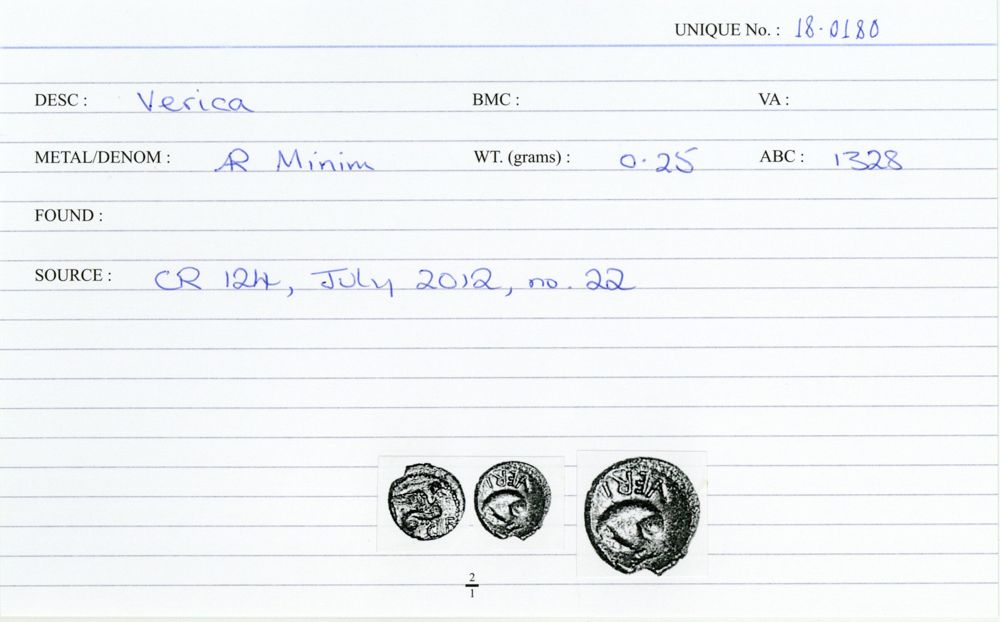 UNIQUE No. : 18·0180
DESC : Verica BMC : VA :
METAL/DENOM : AR Minim WT. (grams) : 0.25 ABC : 1328
FOUND :
SOURCE : CR 124, July 2012, no. 22
VERI
VERI
2
1